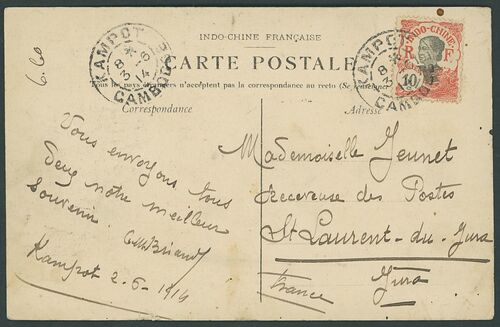 INDO-CHINE FRANÇAISE
CARTE POSTALE
Tous les pays étrangers n'acceptent pas la correspondance au recto (Se renseigner
Correspondance
Adresse
KAMPOT
8 *
3 -6
14
CAMBODGE
KAMPOT
8 *
3
CAMBO
INDO-CHINE
R F
10
6.60
Vous envoyons tous
deux notre meilleur
souvenir.
Kampot 2-6-1914
Mademoiselle Jeunet
Receveuse des Postes
St Laurent-du-Jura
Jura
France